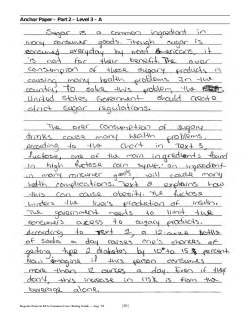 Anchor Paper - Part 2 - Level 3 - A
Sugar is a common ingredient in
many consumer goods. Though sugar is
consumed everyday by most Americans, it
is not for their benefit. The over
consumption of these sugary products is
causing many health problems in the
country. To solve this problem, the
United States Government should create
strict sugar regulations.
The over consumption of sugary
drinks cause many health problems.
According to the chart in Text 3,
fuctose, one of the main ingredients found
in high fuctose corn syrup, an ingredient
in many consumer goods, will cause many
health complications. Text 2 explains how
this can cause obesity. The fuctose
hinders the liver's production of insulin.
The government needs to limit the
consumer's access to sugary products.
According to Text 2, a 12-ounce bottle
of soda a day raises one's chances of
getting type 2 diabetes by 10 to 15 percent.
Now imagine if this person consumes
more than 12 ounces a day. Even if they
don't, this increase in risk is from the
beverage alone.